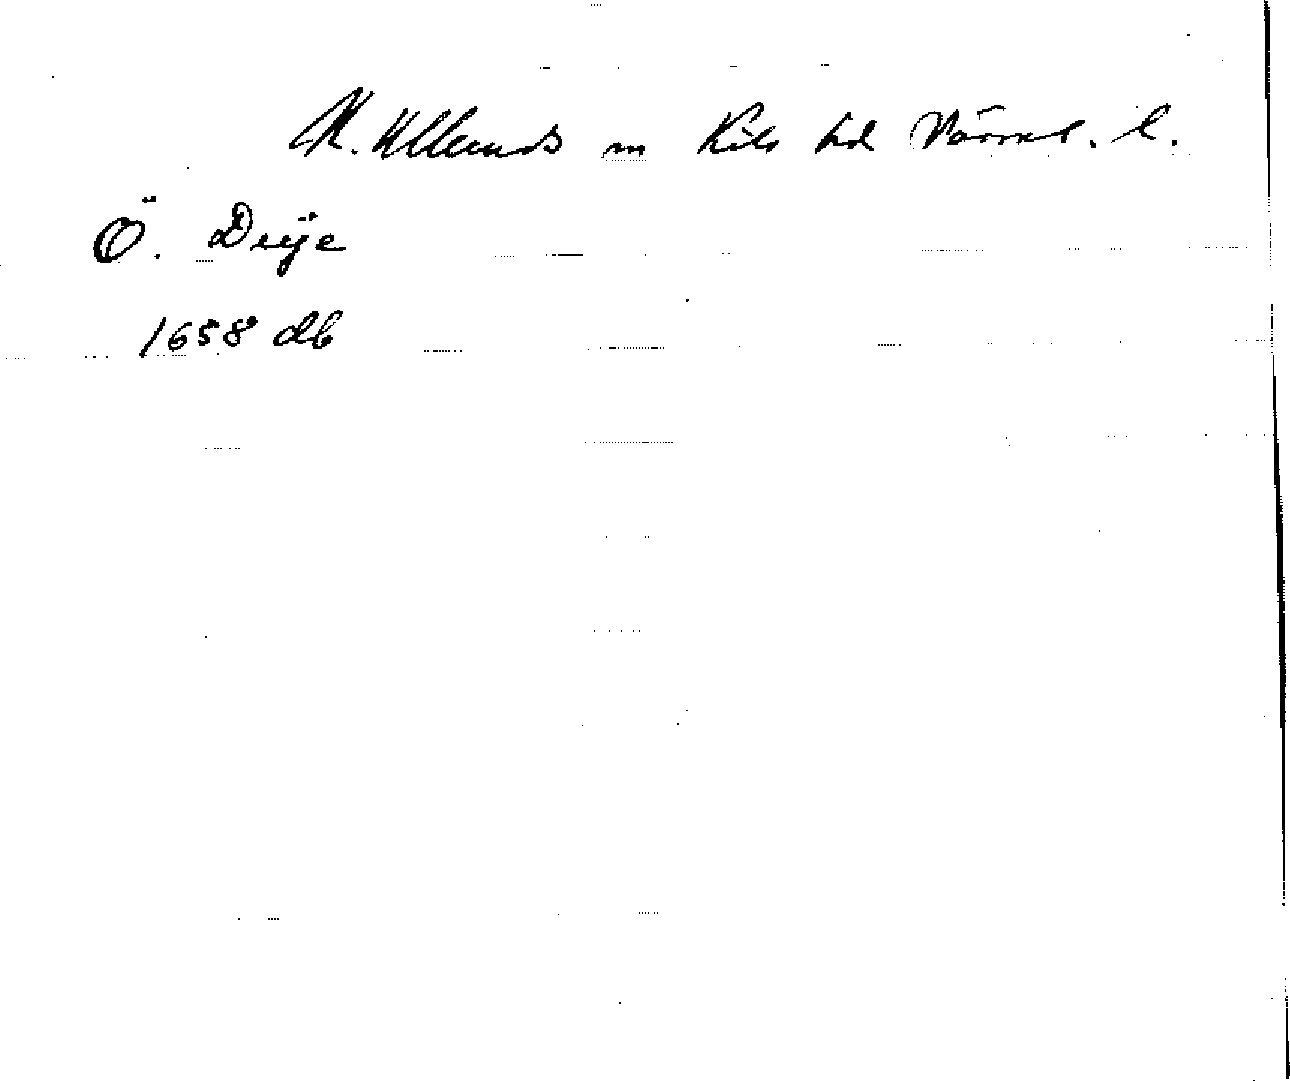 N. Ullerud sn Kils hd Värml. l.
Ö. Deije
1658 db